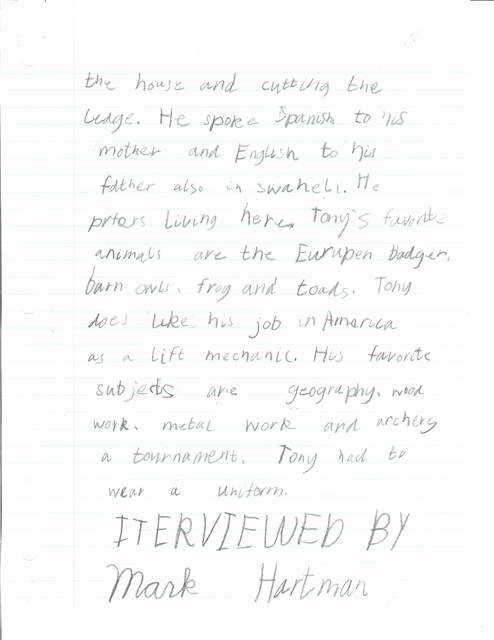 the house and cutting the
ledge. He spoke Spanish to his
mother and English to his
father also in swaheli. He
prfers living here. Tony's favorite
animals are the Eurupen badger,
barn owls, frog and toads. Tony
does like his job in America
as a lift mechanic. His favorite
subjects are geography, wood
work, metal work and archery
a tournament. Tony had to
wear a uniform.
ITERVIEWED BY
Mark Hartman